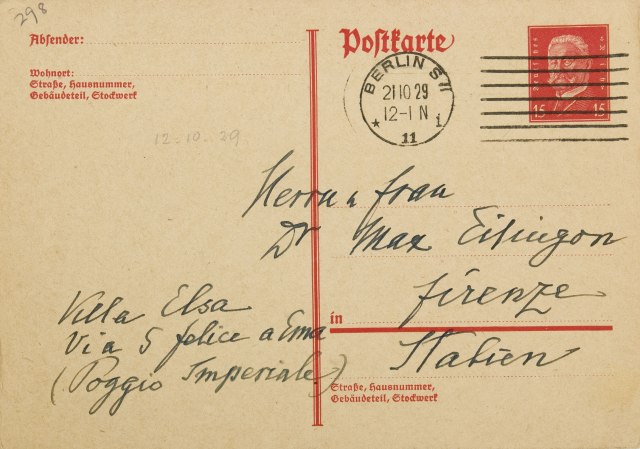 298
Absender:
Wohnort:
Straße, Hausnummer,
Gebäudeteil, Stockwerk
12-10-29
Postkarte
BERLIN S 11
21 10 29
12-1 N
* 11 i
Deutsches Reich
15 15
Herrn u frau
Dr Max Eitingon
firenze
in
Italien
Villa Elsa
Via S felice a Ema
(Poggio Imperiale)
Straße, Hausnummer,
Gebäudeteil, Stockwerk